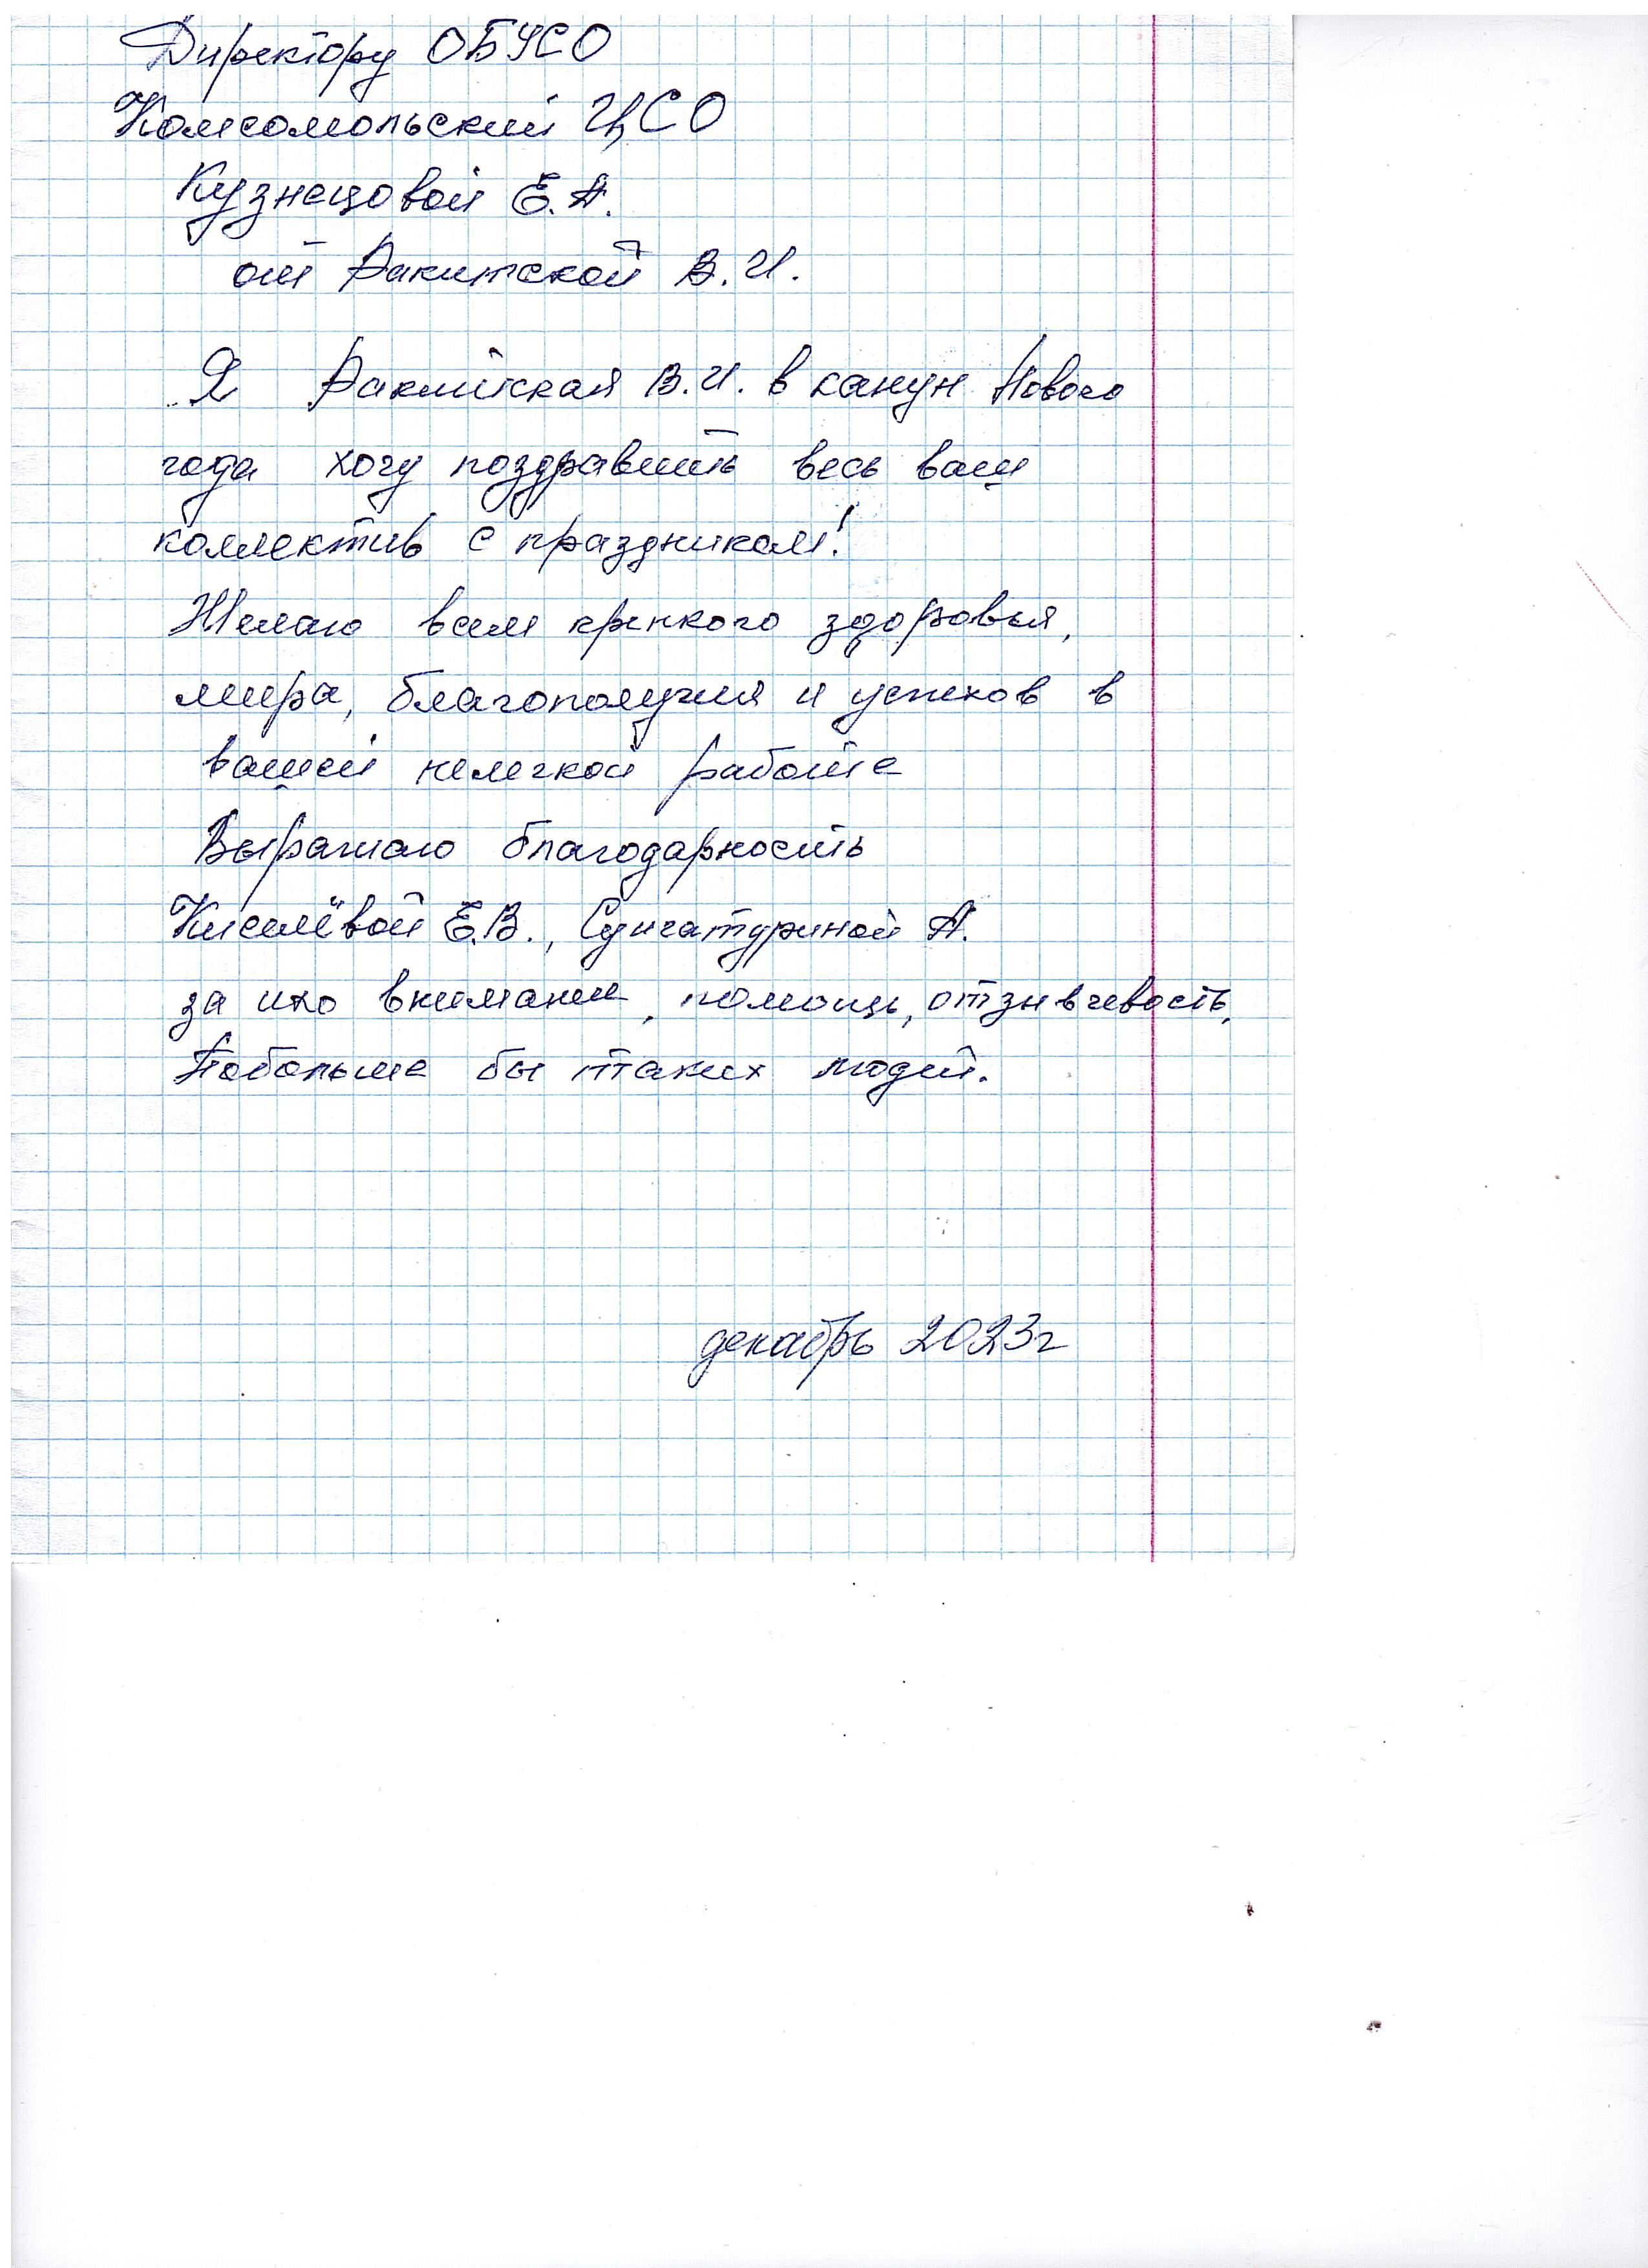 Директору ОБУСО
Комсомольский ЦСО
Кузнецовой Е.А.
от Ракитской В.И.
Я Ракитская В.И. в канун Нового
года хочу поздравить весь ваш
коллектив с праздником!
Желаю всем крепкого здоровья,
мира, благополучия и успехов в
вашей нелегкой работе
Выражаю благодарность
Киселёвой Е.В., Сунгатуриной А.
за их внимание, помощь, отзывчевость,
Побольше бы таких людей.
декабрь 2023г